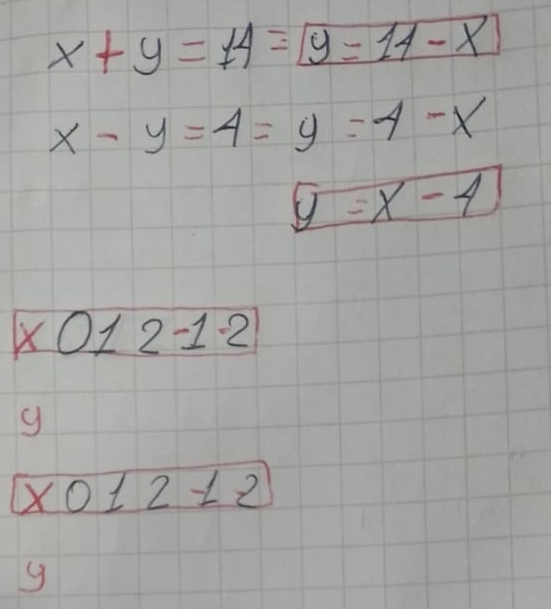 x + y = 14 = y = 14 - x
x - y = 4 = y = 4 - x
y = x - 4
x 0 1 2 -1 -2
y
x 0 1 2 -1 2
y